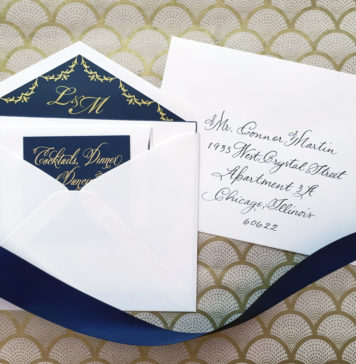 L & M
Cocktails, Dinner
Mr. Connor Martin
1933 West Crystal Street
Apartment 3A
Chicago, Illinois
60622